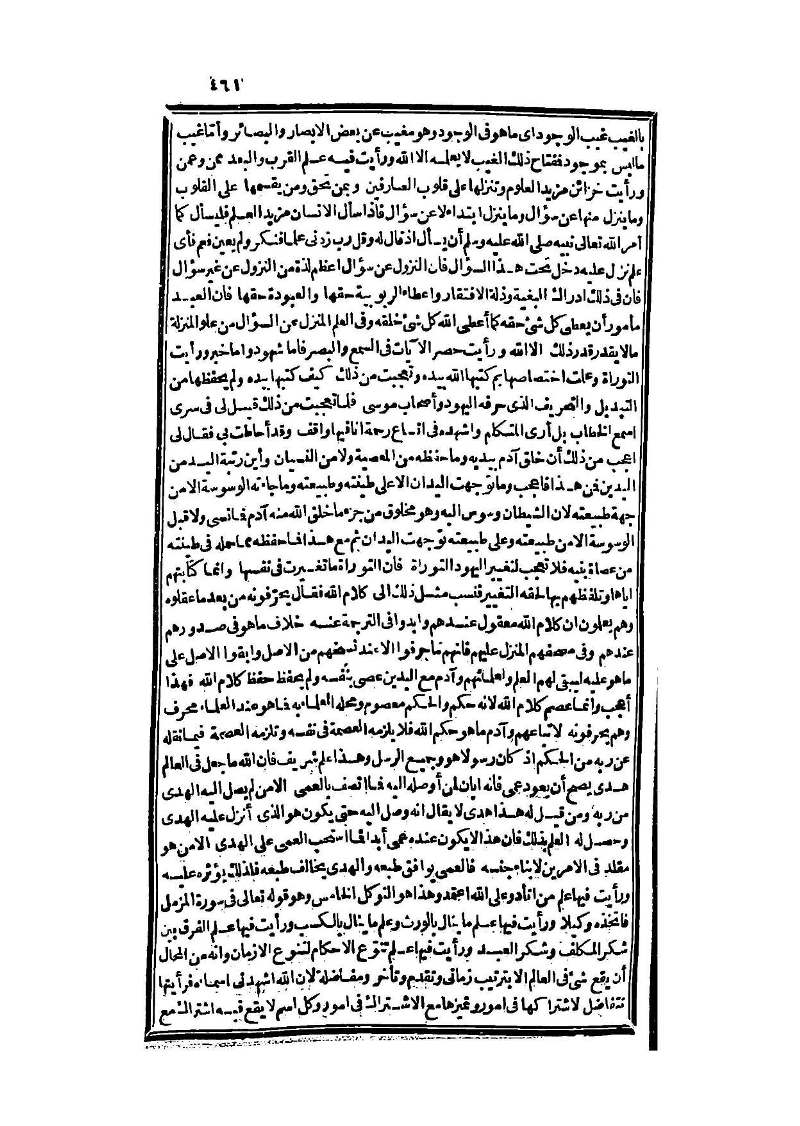 ٤٦١
بالغيب غيب الوجود اى ما هو فى الوجود وهو مغيب عن بعض الابصار والبصائر وأما غيب
ما ليس بموجود فمفتاح ذلك الغيب لا يعلمه الا الله ورأيت فيه علم القرب والبعد ممن وعمن
ورأيت خزائن مزيد العلوم وتنزلها على قلوب العارفين وبمن تحق ومن يقسمها على القلوب
وما ينزل منها عن سؤال وما ينزل ابتداء لا عن سؤال فاذا سأل الانسان مزيد العلم فليسأل كما
أمر الله تعالى نبيه صلى الله عليه وسلم أن يسأل اذ قال له وقل رب زدنى علما فنكر ولم يعين فعم فأى
علم نزل عليه دخل تحت هذا السؤال فان النزول عن سؤال اعظم لذة من النزول عن غير سؤال
فان فى ذلك ادراك البغية وذلة الافتقار واعطاء الربوبية حقها والعبودة حقها فان العبد
مأمور أن يعطى كل شئ حقه كما أعطى الله كل شئ خلقه وفى العلم المنزل عن السؤال من علو المنزلة
ما لا يقدر قدر ذلك الا الله ورأيت حصر الآيات فى السمع والبصر فاما شهود واما خبر ورأيت
التوراة وعلمت اختصاصها بم كتبها الله بيده وتعجبت من ذلك كيف كتبها بيده ولم يحفظها من
التبديل والتحريف الذى حرفه اليهود وأصحاب موسى فلما تعجبت من ذلك قيل لى فى سرى
اسمع الخطاب بل أرى المتكلم واشهده فى اتساع رحمة انا فيها واقف وقد أحاطت بى فقال لى
اعجب من ذلك أن خلق آدم بيديه وما حفظه من المعصية ولا من النسيان وأين رتبة اليد من
اليدين فمن هذا فاعجب وما توجهت اليدان الا على طينته وطبيعته وما جاءته الوسوسة الا من
جهة طبيعته لان الشيطان وسوس اليه وهو مخلوق من جزء ما خلق الله منه آدم فما نسى ولا قبل
الوسوسة الا من طبيعته وعلى طبيعته توجهت اليدان ثم مع هذا فما حفظه مما حمله فى طينته
من عصاة بنيه فلا تعجب لتغيير اليهود التوراة فان التوراة ما تغيرت فى نفسها وانما كتابتهم
اياها وتلفظهم بها لحقه التغيير فنسب مثل ذلك الى كلام الله فقال يحرّفونه من بعد ما عقلوه
وهم يعلمون ان كلام الله معقول عندهم وابدوا فى الترجمة عنه خلاف ما هو فى صدورهم
عندهم وفى مصحفهم المنزل عليهم فانهم ما حرفوا الا عند نسخهم من الاصل وابقوا الاصل على
ما هو عليه ليبقى لهم العلم ولعلمائهم وآدم مع اليدين عصى بنفسه ولم يحفظ حفظ كلام الله فهذا
أعجب وانما عصم كلام الله لانه حكم والحكم معصوم ومحله العلماء به فما هو عند العلماء محرف
وهم يحرفونه لاتباعهم وآدم ما هو حكم الله فلا يلزمه العصمة فى نفسه وتلزمه العصمة فيما نقله
عن ربه من الحكم اذ كان رسولا هو وجميع الرسل وهذا علم شريف فان الله ما جعل فى العالم
هدى يصح أن يعود عمى فانه ابان لمن أوصله اليه فما اتصف بالعمى الا من لم يصل اليه الهدى
من ربه ومن قيل له هذا هدى لا يقال انه وصل اليه حتى يكون هو الذى أنزل عليه الهدى
وحصل له العلم بذلك فان هذا لا يكون عنده عمى أبدا فما استحب العمى على الهدى الا من هو
مقلد فى الامرين لابناء جنسه فالعمى يوافق طبعه والهدى يخالف طبعه فلذلك يؤثره عليه
ورأيت فيها علم من اتأد وعلى الله اعتمد وهذا هو التوكل الخامس وهو قوله تعالى فى سورة المزمل
فاتخذه وكيلا ورأيت فيها علم ما ينال بالورث وعلم ما ينال بالكسب ورأيت فيها علم الفرق بين
شكر المكلف وشكر العبد ورأيت فيها علم تنوع الاحكام لتنوع الازمان وانه من المحال
أن يقع شئ فى العالم الا بترتيب زمانى وتقدم وتأخر ومفاضلة لان الله اشهدنى اسماءه فرأيتها
تتفاضل لاشتراكها فى امور وتميزها مع الاشتراك فى امور وكل اسم لا يقع فيه اشتراك مع